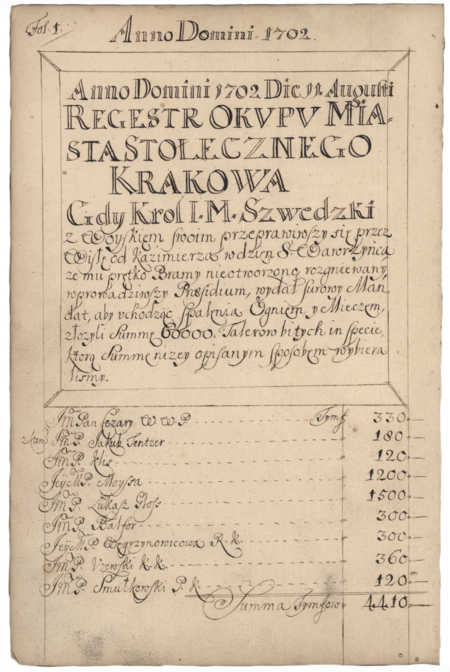 Fol. 1.
Anno Domini 1702.
Anno Domini 1702 Die 11 Augusti
REGESTR OKVPV MIA-
STA STOŁECZNEGO
KRAKOWA
Gdy Krol I. M. Szwedzki
z Woyskiem swoim przeprawiwszy się przez
Wisłę od Kazimierza, w dzień S. Wawrzyńca
że mu prętko Bramy nieotworzono, rozgniewany
wprowadziwszy Præsidium, wydał surowy Man-
dat, aby uchodząc spalenia Ogniem y Mieczem,
złożyli Summę 60000. Talerow bitych in specie,
ktorą Summę niżey opisanym sposobem wybiera
lismy.
Jm̃ Pan Cezary W W P. Tymf 330
Jm̃ P. Jakub Tentzer 180
Jm̃ P. 120
Jeÿ M P. Moyssa 1200
Jm̃ P. Łukasz Gloss 1500
Jm̃ P. 300
Jeÿ M P. Węgrzynowicowa R. k. 300
Jm̃ P. k. k. 360
Jm̃ P. Smutkowski P. k. 120
Summa Tymfow 4410